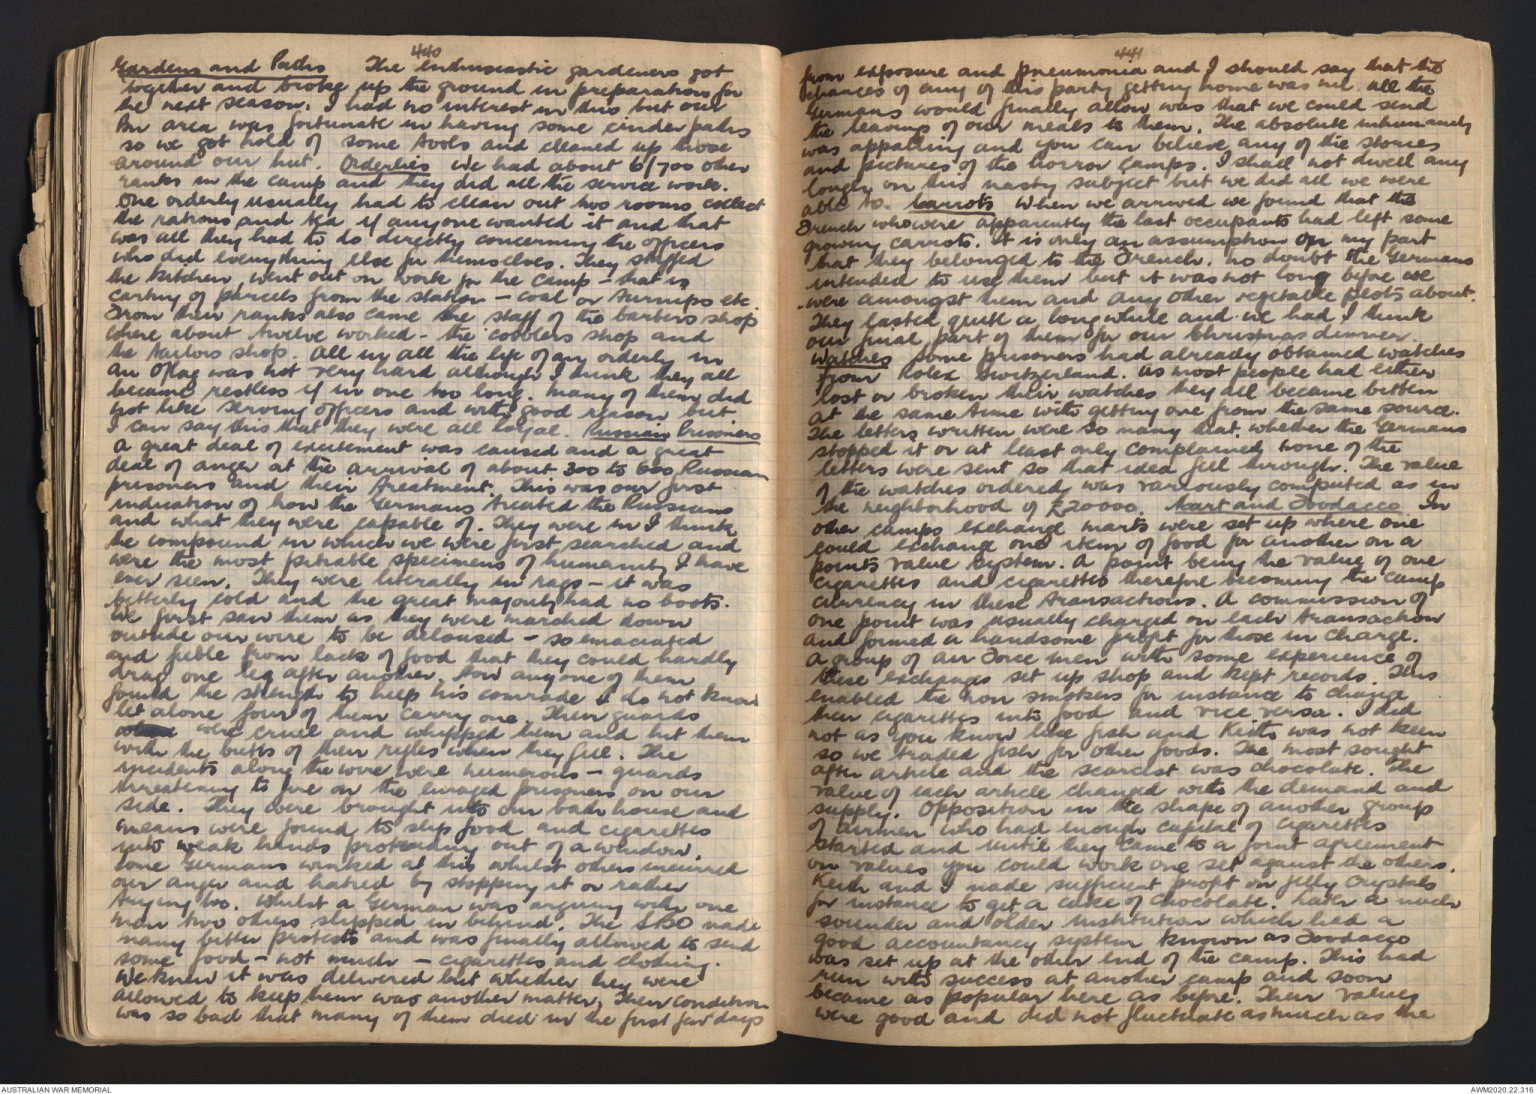 440
Gardens and Paths The enthusiastic gardeners got
together and broke up the ground in preparation for
the next season. I had no interest in this but our
own area was fortunate in having some cinder paths
so we got hold of some tools and cleaned up those
around our hut. Orderlies We had about 6/700 other
ranks in the camp and they did all the service work.
One orderly usually had to clean out two rooms collect
the rations and tea if anyone wanted it and that
was all they had to do directly concerning the officers
who did everything else for themselves. They staffed
the kitchen, went out on work for the camp - that is
carting of parcels from the station - coal or turnips etc.
From their ranks also came the staff of the barbers shop
where about twelve worked - the cobblers shop and
the tailors shop. All in all the life of an orderly in
an Oflag was not very hard although I think they all
became restless if in one too long. Many of them did
not like serving officers and with good reason but
I can say this that they were all loyal. Russian Prisoners
A great deal of excitement was caused and a great
deal of anger at the arrival of about 300 to 600 Russian
prisoners and their treatment. This was our first
indication of how the Germans treated the Russians
and what they were capable of. They were in I think
the compound in which we were first searched and
were the most pitiable specimens of humanity I have
ever seen. They were literally in rags - it was
bitterly cold and the great majority had no boots.
We first saw them as they were marched down
outside our wire to be deloused - so emaciated
and feeble from lack of food that they could hardly
drag one leg after another. How anyone of them
found the strength to help his comrade I do not know
let alone four of them carry one. Their guards
were cruel and whipped them and hit them
with the butts of their rifles when they fell. The
incidents along the wire were numerous - guards
threatening to fire on the enraged prisoners on our
side. They were brought into our bath house and
means were found to slip food and cigarettes
into weak hands protruding out of a window.
Some Germans winked at this whilst others incurred
our anger and hatred by stopping it or rather
trying to. Whilst a German was arguing with one
man two others slipped in behind. The SBO made
many bitter protests and was finally allowed to send
some food - not much - cigarettes and clothing.
We knew it was delivered but whether they were
allowed to keep them was another matter. Their condition
was so bad that many of them died in the first few days
441
from exposure and pneumonia and I should say that the
chances of any of this party getting home was nil. All the
Germans would finally allow was that we could send
the leavings of our meals to them. The absolute inhumanity
was appalling and you can believe any of the stories
and pictures of the horror camps. I shall not dwell any
longer on this nasty subject but we did all we were
able to. Carrots When we arrived we found that the
French who were apparently the last occupants had left some
growing carrots. It is only an assumption on my part
that they belonged to the French. No doubt the Germans
intended to use them but it was not long before we
were amongst them and any other vegetable plots about.
They lasted quite a long while and we had I think
our final part of them for our Christmas dinner.
Watches Some prisoners had already obtained watches
from Rolex Switzerland. As most people had either
lost or broken their watches they all became bitten
at the same time with getting one from the same source.
The letters written were so many that whether the Germans
stopped it or at least only complained none of the
letters were sent so that idea fell through. The value
of the watches ordered was variously computed as in
the neighborhood of £20000. Mart and Foodacco In
other camps exchange marts were set up where one
could exchange one item of food for another on a
points value system. A point being the value of one
cigarette and cigarettes therefore becoming the camp
currency in these transactions. A commission of
one point was usually charged on each transaction
and formed a handsome profit for those in charge.
A group of air Force men with some experience of
these exchanges set up shop and kept records. This
enabled the non smokers for instance to change
their cigarettes into food and vice versa. I did
not as you know like fish and Keith was not keen
so we traded fish for other foods. The most sought
after article and the scarcest was chocolate. The
value of each article changed with the demand and
supply. Opposition in the shape of another group
of airmen who had enough capital of cigarettes
started and until they came to a joint agreement
on values you could work one set against the others.
Keith and I made sufficient profit on Jelly Crystals
for instance to get a cake of chocolate. Later a much
sounder and older institution which had a
good accountancy system known as Foodacco
was set up at the other end of the camp. This had
run with success at another camp and soon
became as popular here as before. Their values
were good and did not fluctuate as much as the
AUSTRALIAN WAR MEMORIAL
AWM2020.22.316